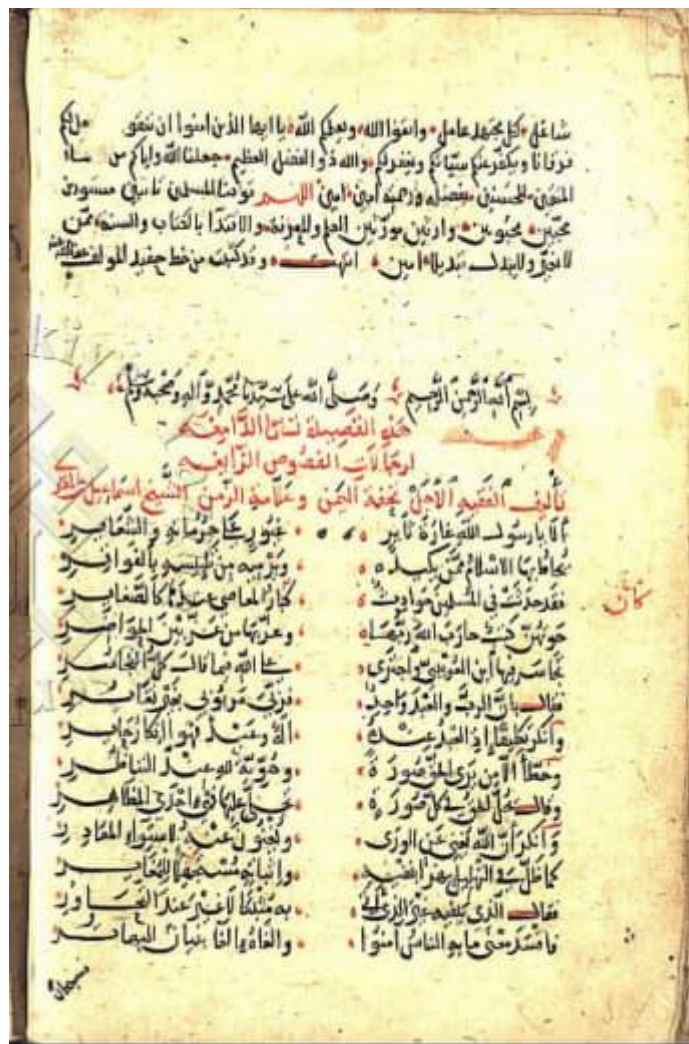 شاغل • لكل مجتهد عامل • واتقوا الله • ويعلمكم الله • يا ايها الذين امنوا ان تتقوا
فرقانا ويكفر عنكم سيئاتكم ويغفر لكم • والله ذو الفضل العظيم • جعلنا الله واياكم من
المتقين • المحسنين • بفضله ورحمته امين • امين اللهم توفنا المسلمين تائبين
محبين • محبوبين • وارثين مورثين العلم والمعرفة • والاقتدا بالكتاب والسنة • ممن
لا يغير ولا يبدل تبديلا • امين • انتهت وقد كتبت من خط حفيد المولف
بسم الله الرحمن الرحيم وصلى الله على سيدنا محمد وآله وصحبه وسلم
هذه القصيدة تسمى الدامغة
لرجالات الفصوص الزايغة
تأليف الفقيه الأجل تحفة اليمن وعلامة الزمن الشيخ اسماعيل
ألا يا رسول الله غارة ثاير • غيور على حرماته والشعاير
يحاط بها الاسلام ممن يكيده • ويرميه من تلبيسه بالفواقر
فقد حدثت في المسلمين حوادث • كبار المعاصي عندها كالصغاير
كان
حوتهن كتب حارب الله ربها • وغر بها من غر بين الحواضر
تجاسر فيها ابن العريبي واجترى • على الله فيما قال كل التجاسر
فقال بان الرب والعبد واحد • فربي مربوبي بغير تغاير
وأنكر تكليفا إذ العبد عنده • اله وعبد فهو انكار جاير
وخطأ الا من يرى الخلق صورة • هوية لله عند التناظر
وقال تجلى الحق في كل صورة • تجلى عليها فهي احدى المظاهر
وأنكر أن الله يغني عن الورى • ويغنون عنه لاستواء المقادر
كما ظل في التهليل يهزا بنفيه • واثباته مستجهلا للمغاير
فقال الذي ينفيه عين الذي • به مثبتا لا غير عند التحاور
فافسد معنى ما به الناس امنوا • والغاه الغا بينات التهاتر
فسبحان